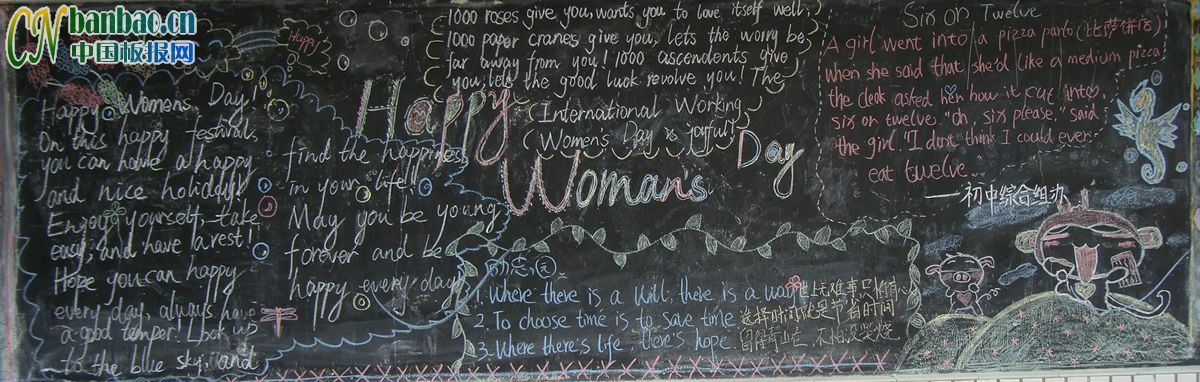 CN banbao.cn
中国板报网
Happy
Happy Womens Day!
On this happy festival,
you can have a happy
and nice holiday!
Enjoy yourself, take
easy, and have a rest!
Hope you can happy
every day, always have
a good temper! Look up
to the blue sky, and
find the happiness
in your life!
May you be young
forever and be
happy every day!
Happy
Woman's
Day
1000 roses give you, wants you to love itself well;
1000 paper cranes give you, lets the worry be
far away from you! 1000 ascendents give
you, lets the good luck revolve you! The
International Working
Women's Day is joyful!
Six or Twelve
A girl went into a pizza parlo (比萨饼店)
when she said that she'd like a medium pizza
the cleak asked her how it cut into,
six or twelve. "Oh, six please," said
the girl "I dont think I could ever
eat twelve..
——初中综合组办
1. Where there is a will, there is a way 世上无难事只怕有心
2. To choose time is to save time 选择时间就是节省时间
3. Where there's life, there's hope 留得青山在 不怕没柴烧